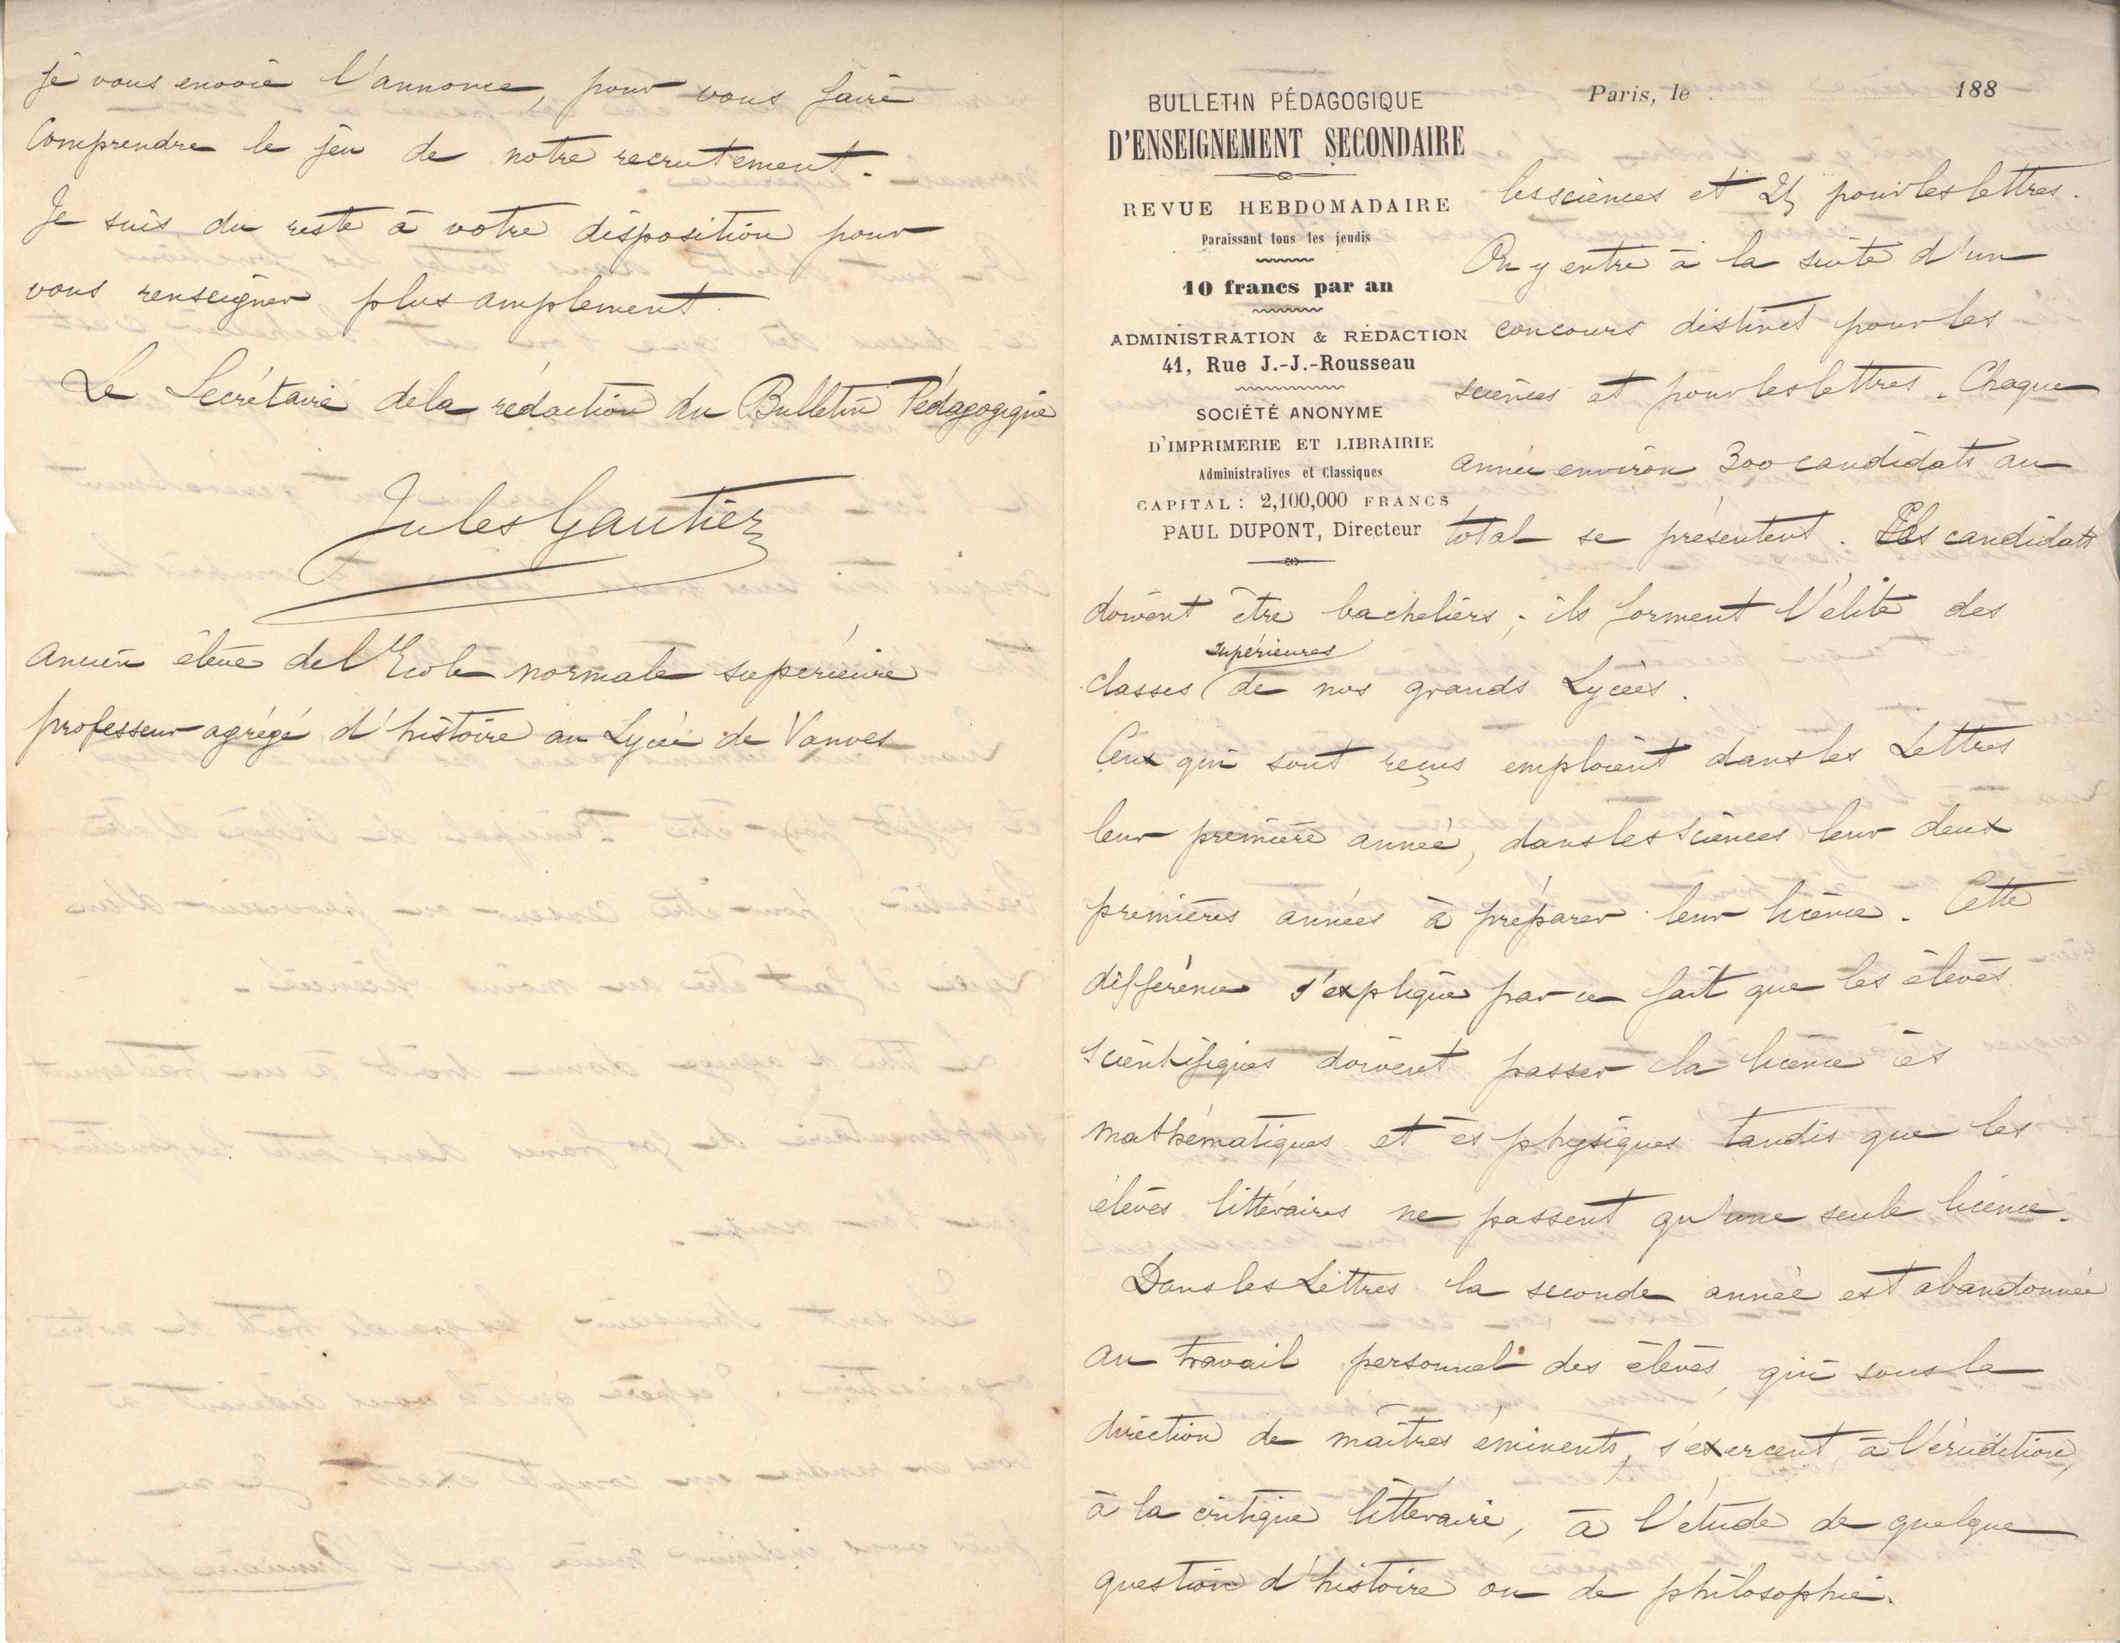 je vous envoie l'annonce, pour vous faire
comprendre le jeu de notre recrutement.
Je suis du reste à votre disposition pour
vous renseigner plus amplement.
Le Secrétaire de la rédaction du Bulletin Pédagogique
Jules Gautier
ancien élève de l'Ecole normale supérieure
professeur agrégé d'histoire au Lycée de Vanves
BULLETIN PÉDAGOGIQUE
D'ENSEIGNEMENT SECONDAIRE
REVUE HEBDOMADAIRE
Paraissant tous les jeudis
10 francs par an
ADMINISTRATION & RÉDACTION
41, Rue J.-J.-Rousseau
SOCIÉTÉ ANONYME
D'IMPRIMERIE ET LIBRAIRIE
Administratives et Classiques
CAPITAL : 2,100,000 FRANCS
PAUL DUPONT, Directeur
Paris, le 188
les sciences et 25 pour les lettres.
On y entre à la suite d'un
concours distinct pour les
sciences et pour les lettres. Chaque
année environ 300 candidats au
total se présentent. Les candidats
doivent être bacheliers ; ils forment l'élite des
supérieures
classes de nos grands Lycées.
Ceux qui sont reçus emploient dans les Lettres
leur première année, dans les Sciences leur deux
premières années à préparer leur licence. Cette
différence s'explique par ce fait que les élèves
scientifiques doivent passer la licence ès
mathématiques et ès physiques tandis que les
élèves littéraires ne passent qu'une seule licence.
Dans les Lettres la seconde année est abandonnée
au travail personnel des élèves, qui sous la
direction de maîtres éminents, s'exercent à l'érudition,
à la critique littéraire, à l'étude de quelque
question d'histoire ou de philosophie.